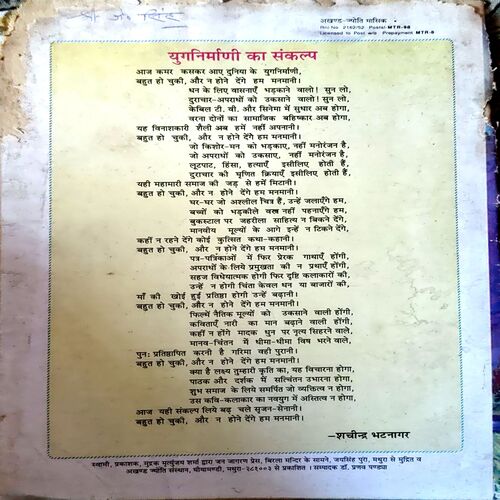 श्री जे० सिंह
अखण्ड-ज्योति मासिक
R.N.I No. 2162/52 Postal-MTR-96
Licensed to Post w/o Prepayment MTR-8
युगनिर्माणी का संकल्प
आज कमर कसकर आए दुनिया के युगनिर्माणी,
बहुत हो चुकी, और न होने देंगे हम मनमानी।
धन के लिए वासनाएँ भड़काने वालो! सुन लो,
दुराचार-अपराधों को उकसाने वालो! सुन लो,
केबिल टी. वी. और सिनेमा में सुधार अब होगा,
वरना दोनों का सामाजिक बहिष्कार अब होगा,
यह विनाशकारी शैली अब हमें नहीं अपनानी।
बहुत हो चुकी, और न होने देंगे हम मनमानी।
जो किशोर-मन को भड़काए, नहीं मनोरंजन है,
जो अपराधों को उकसाए, नहीं मनोरंजन है,
लूटपाट, हिंसा, हत्याएँ इसीलिए होती हैं,
दुराचार की घृणित क्रियाएँ इसीलिए होती हैं,
यही महामारी समाज की जड़ से हमें मिटानी।
बहुत हो चुकी, और न होने देंगे हम मनमानी।
घर-घर जो अश्लील चित्र हैं, उन्हें जलाएँगे हम,
बच्चों को भड़कीले वस्त्र नहीं पहनाएँगे हम,
बुकस्टाल पर जहरीला साहित्य न बिकने देंगे,
मानवीय मूल्यों के आगे इन्हें न टिकने देंगे,
कहीं न रहने देंगे कोई कुत्सित कथा-कहानी।
बहुत हो चुकी, और न होने देंगे हम मनमानी।
पत्र-पत्रिकाओं में फिर प्रेरक गाथाएँ होंगी,
अपराधों के लिये प्रमुखता की न प्रथाएँ होंगी,
सहज विधेयात्मक होगी फिर दृष्टि कलाकारों की,
उन्हें न होगी चिंता केवल धन या बाजारों की,
माँ की खोई हुई प्रतिष्ठा होगी उन्हें बढ़ानी।
बहुत हो चुकी, और न होने देंगे हम मनमानी।
फिल्में नैतिक मूल्यों को उकसाने वाली होंगी,
कविताएँ नारी का मान बढ़ाने वाली होंगी,
कहीं न होंगे मादक धुन पर नृत्य सिहरने वाले,
मानव-चिंतन में धीमा-धीमा विष भरने वाले,
पुन: प्रतिष्ठापित करनी है गरिमा वही पुरानी।
बहुत हो चुकी, और न होने देंगे हम मनमानी।
क्या है लक्ष्य तुम्हारी कृति का, यह विचारना होगा,
पाठक और दर्शक में सत्चिंतन उभारना होगा,
शुभ समाज के लिये समर्पित जो व्यक्तित्व न होगा,
उस कवि-कलाकार का नवयुग में अस्तित्व न होगा,
आज यही संकल्प लिये बढ़ चले सृजन-सेनानी।
बहुत हो चुकी, और न होने देंगे हम मनमानी।
-शचीन्द्र भटनागर
स्वामी, प्रकाशक, मुद्रक मृत्युंजय शर्मा द्वारा जन जागरण प्रेस, बिरला मन्दिर के सामने, जयसिंह पुरा, मथुरा से मुद्रित व
अखण्ड ज्योति संस्थान, घीयामण्डी, मथुरा-२८१००३ से प्रकाशित । सम्पादक डॉ. प्रणव पण्ड्या